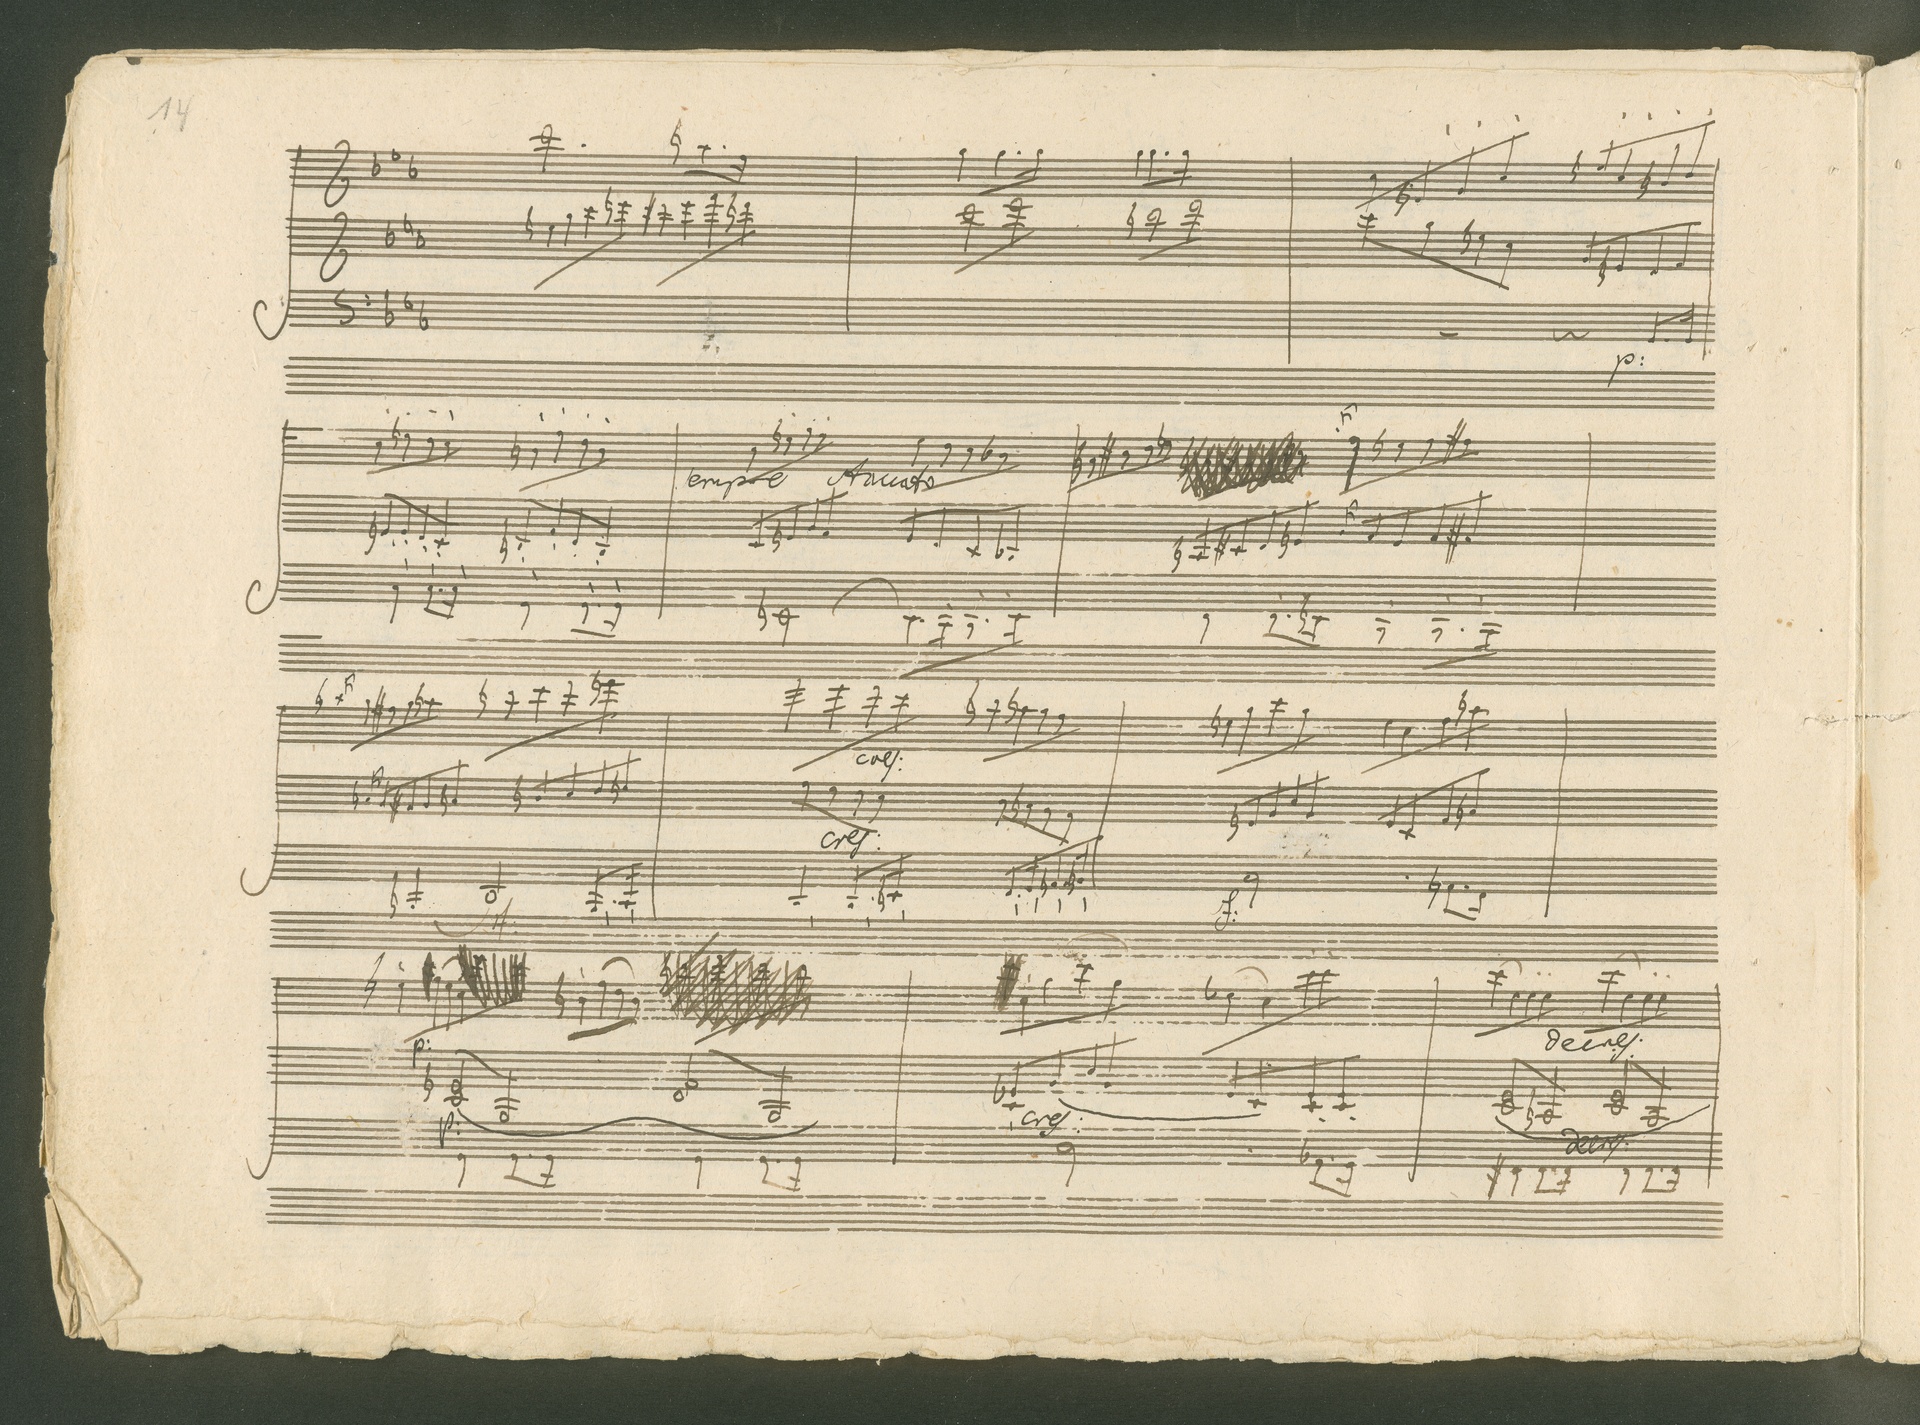 14
p:
sempre staccato
cres:
cres:
f:
p:
p:
cres:
decres:
decres: